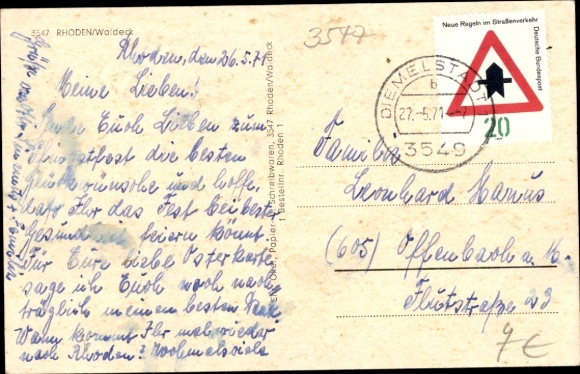 3547 RHODEN/Waldeck
Rhoden, den 26.5.71
Meine Lieben!
Sende Euch Lieben zum
Pfingstfest die besten
Glückwünsche und hoffe,
daß Ihr das Fest bei bester
Gesundheit feiern könnt.
Für Eure liebe Osterkarte
sage ich Euch noch nach-
träglich meinen besten Dank
Wann kommt Ihr mal wieder
nach Rhoden? Nochmals viele
Grüße
Schreibwaren, 3547 Rhoden/Waldeck
1 Bestellnr. Rhoden 1
3547
Neue Regeln im Straßenverkehr
Deutsche Bundespost
20
DIEMELSTADT
b
27.-5.71.-7
3549
Familie
Leonhard Marius
(605) Offenbach a. M.
Flutstraße 23
7€